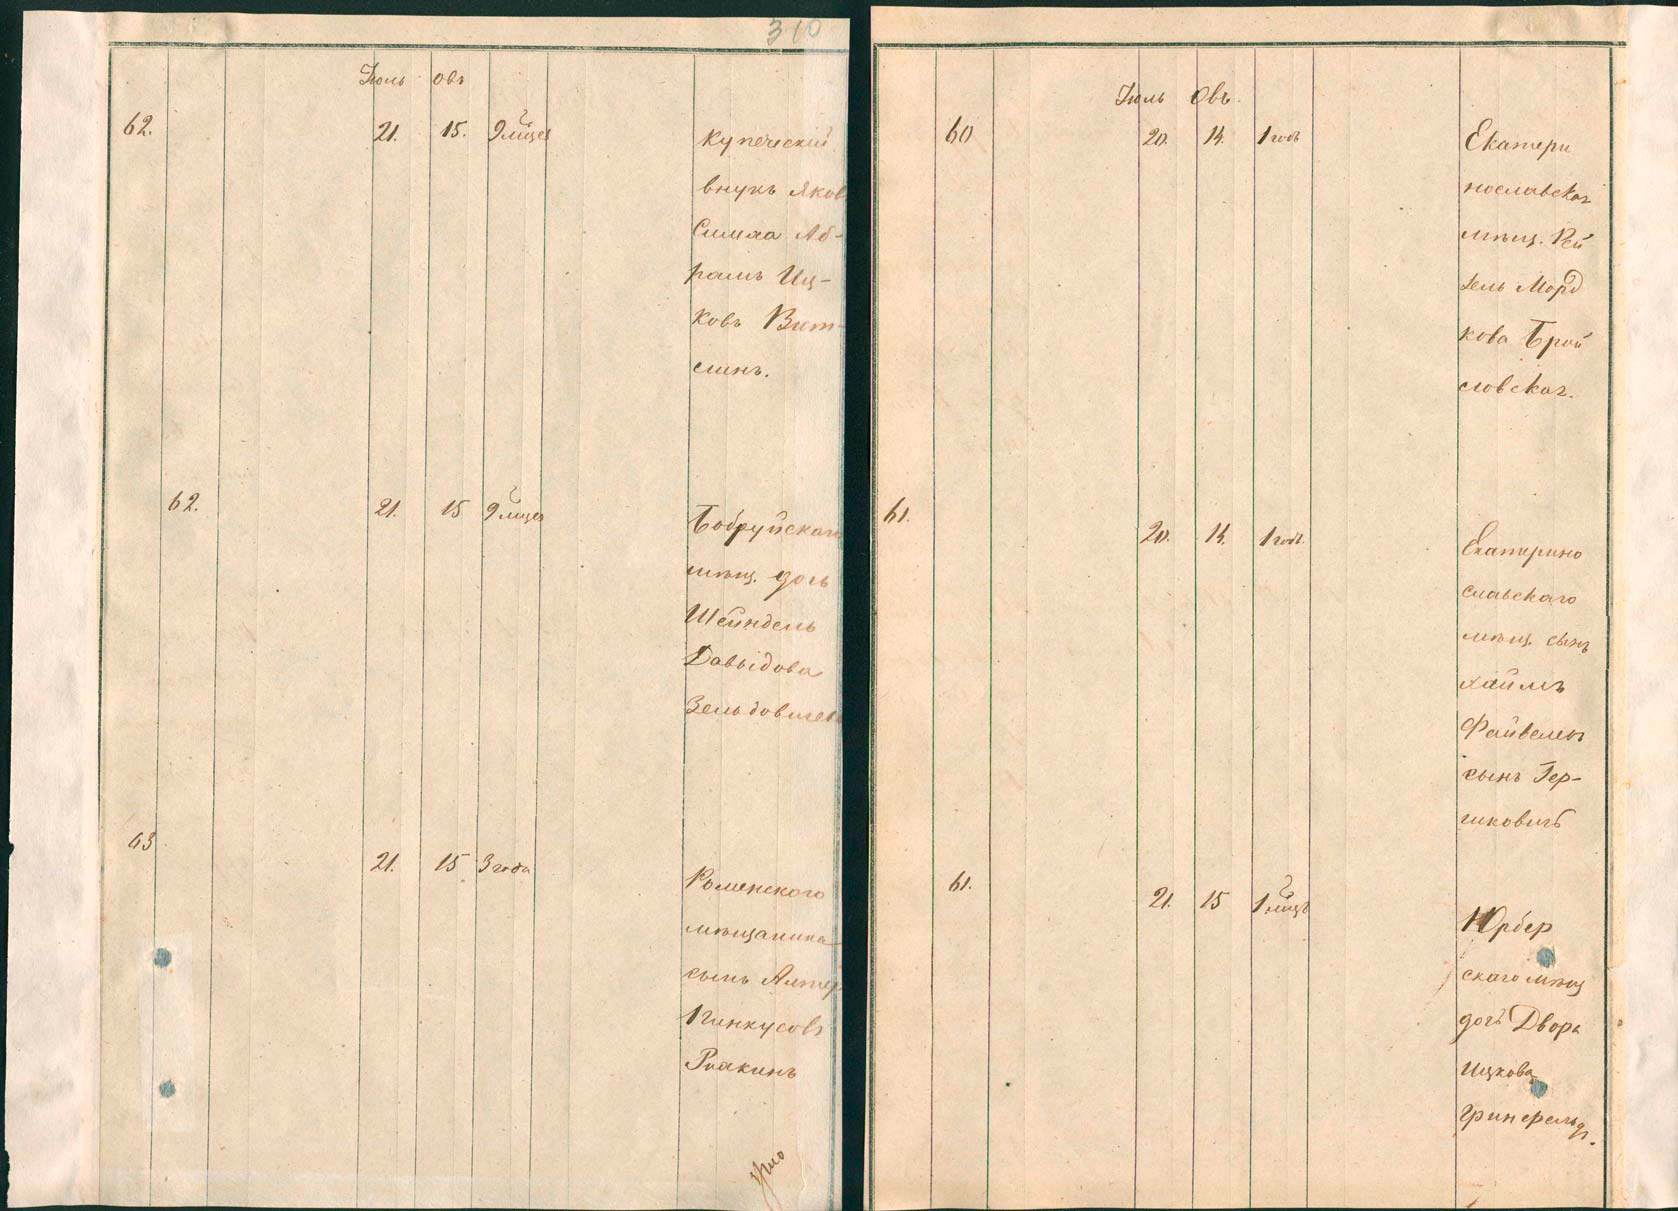 310
Іюль Овъ
62. 21. 15. 9 мѣсец
Купеческій
внукъ Яковъ
Симха Аб-
рамъ Иц-
ковъ Вит-
слинъ.
62. 21. 15 9 мѣсец
Бобруйскаго
мѣщ. дочь
Шейндель
Давыдова
Зельдовичев
63 21. 15 3 года
Роменского
мѣщанина
сынъ Алтер
Пинкусовъ
Рпакинъ
Іюль Овъ.
60 20. 14. 1 годъ
Екатери
нославская
мѣщ. Рей
зель Морд
кова Брой
словская.
61. 20. 14. 1 годъ.
Екатерино
славскаго
мѣщ. сынъ
Хаимъ
Файвелев
сынъ Гер-
шковичъ
61. 21. 15 1 мѣсц
Юрбер
скаго мѣщ
дочь Двора
Ицкова
Гринфельдъ.